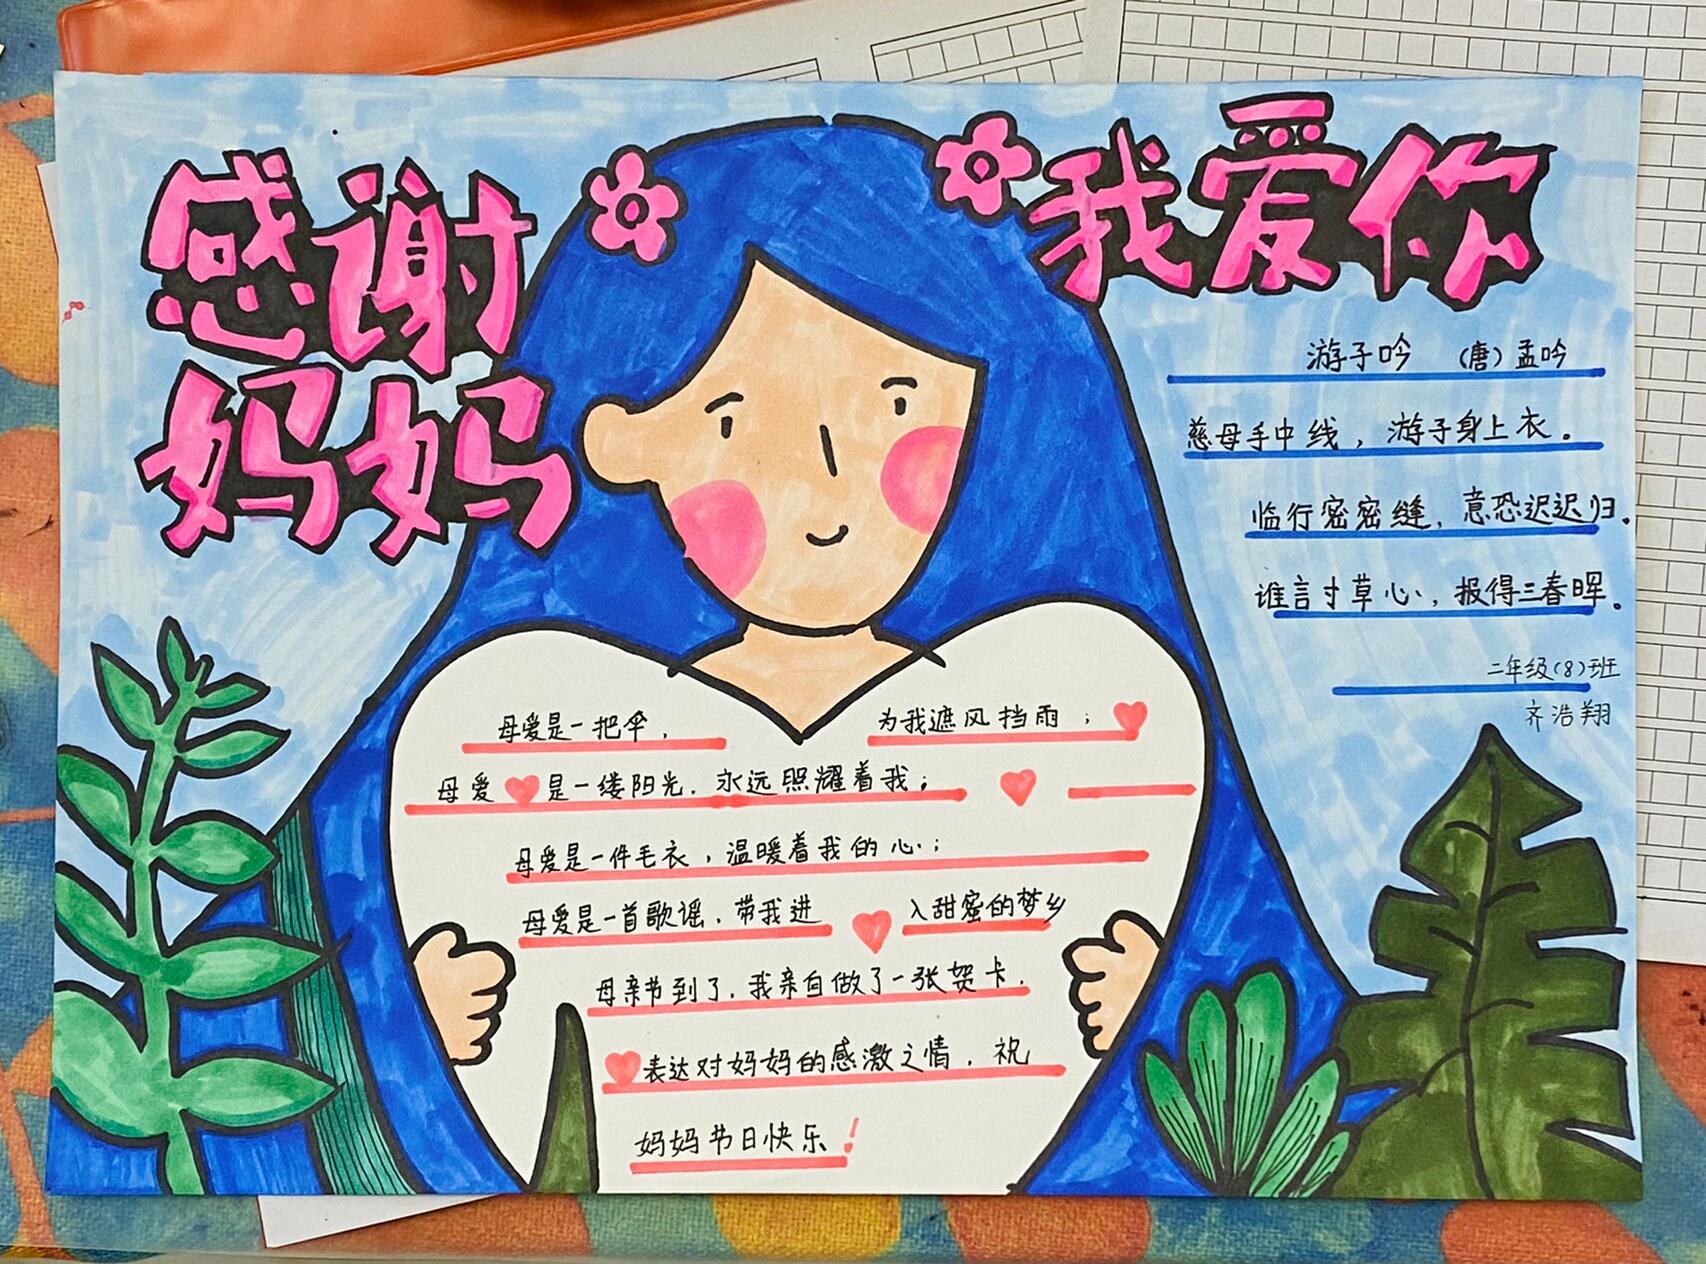 感谢
妈妈
我爱你
游子吟 （唐）孟吟
慈母手中线，游子身上衣。
临行密密缝，意恐迟迟归。
谁言寸草心，报得三春晖。
二年级（8）班
齐浩翔
母爱是一把伞，为我遮风挡雨；
母爱是一缕阳光，永远照耀着我；
母爱是一件毛衣，温暖着我的心；
母爱是一首歌谣，带我进入甜蜜的梦乡
母亲节到了，我亲自做了一张贺卡，
表达对妈妈的感激之情，祝
妈妈节日快乐！